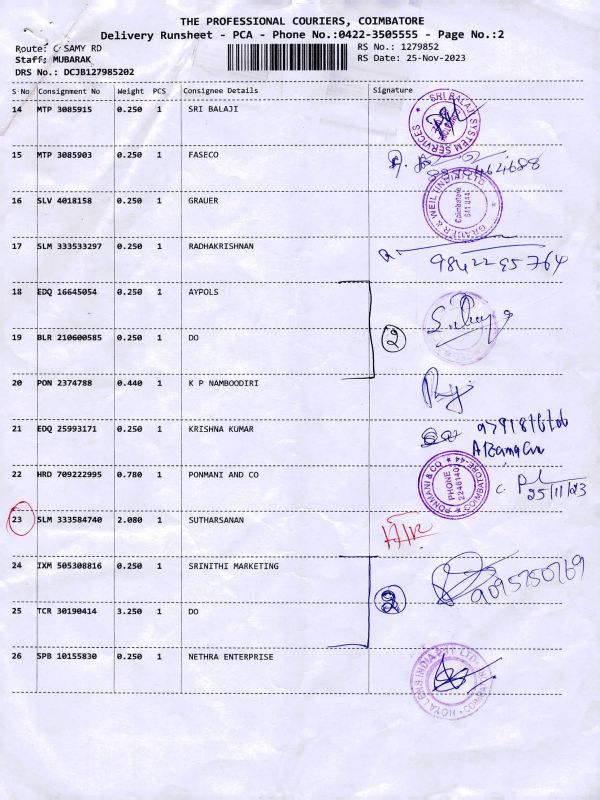 THE PROFESSIONAL COURIERS, COIMBATORE
Delivery Runsheet - PCA - Phone No.:0422-3505555 - Page No.:2
Route: C SAMY RD
Staff: MUBARAK
DRS No.: DCJB127985202
RS No.: 1279852
RS Date: 25-Nov-2023
S No Consignment No Weight PCS Consignee Details Signature
14 MTP 3085915 0.250 1 SRI BALAJI
SRI BALAJI SYSTEM SERVICES
15 MTP 3085903 0.250 1 FASECO
16 SLV 4018158 0.250 1 GRAUER
GRAUER & WEIL (INDIA) LTD
Coimbatore
641 044
17 SLM 333533297 0.250 1 RADHAKRISHNAN
9842295764
18 EDQ 16645054 0.250 1 AYPOLS
19 BLR 210600585 0.250 1 DO
2
20 PON 2374788 0.440 1 K P NAMBOODIRI
21 EDQ 25993171 0.250 1 KRISHNA KUMAR
22 HRD 709222995 0.780 1 PONMANI AND CO
PONMANI & CO
PHONE
COIMBATORE-44
25/11/23
23 SLM 333584740 2.080 1 SUTHARSANAN
24 IXM 505308816 0.250 1 SRINITHI MARKETING
9095750769
25 TCR 30190414 3.250 1 DO
2
26 SPB 10155830 0.250 1 NETHRA ENTERPRISE
HOYA LENS INDIA PVT LTD